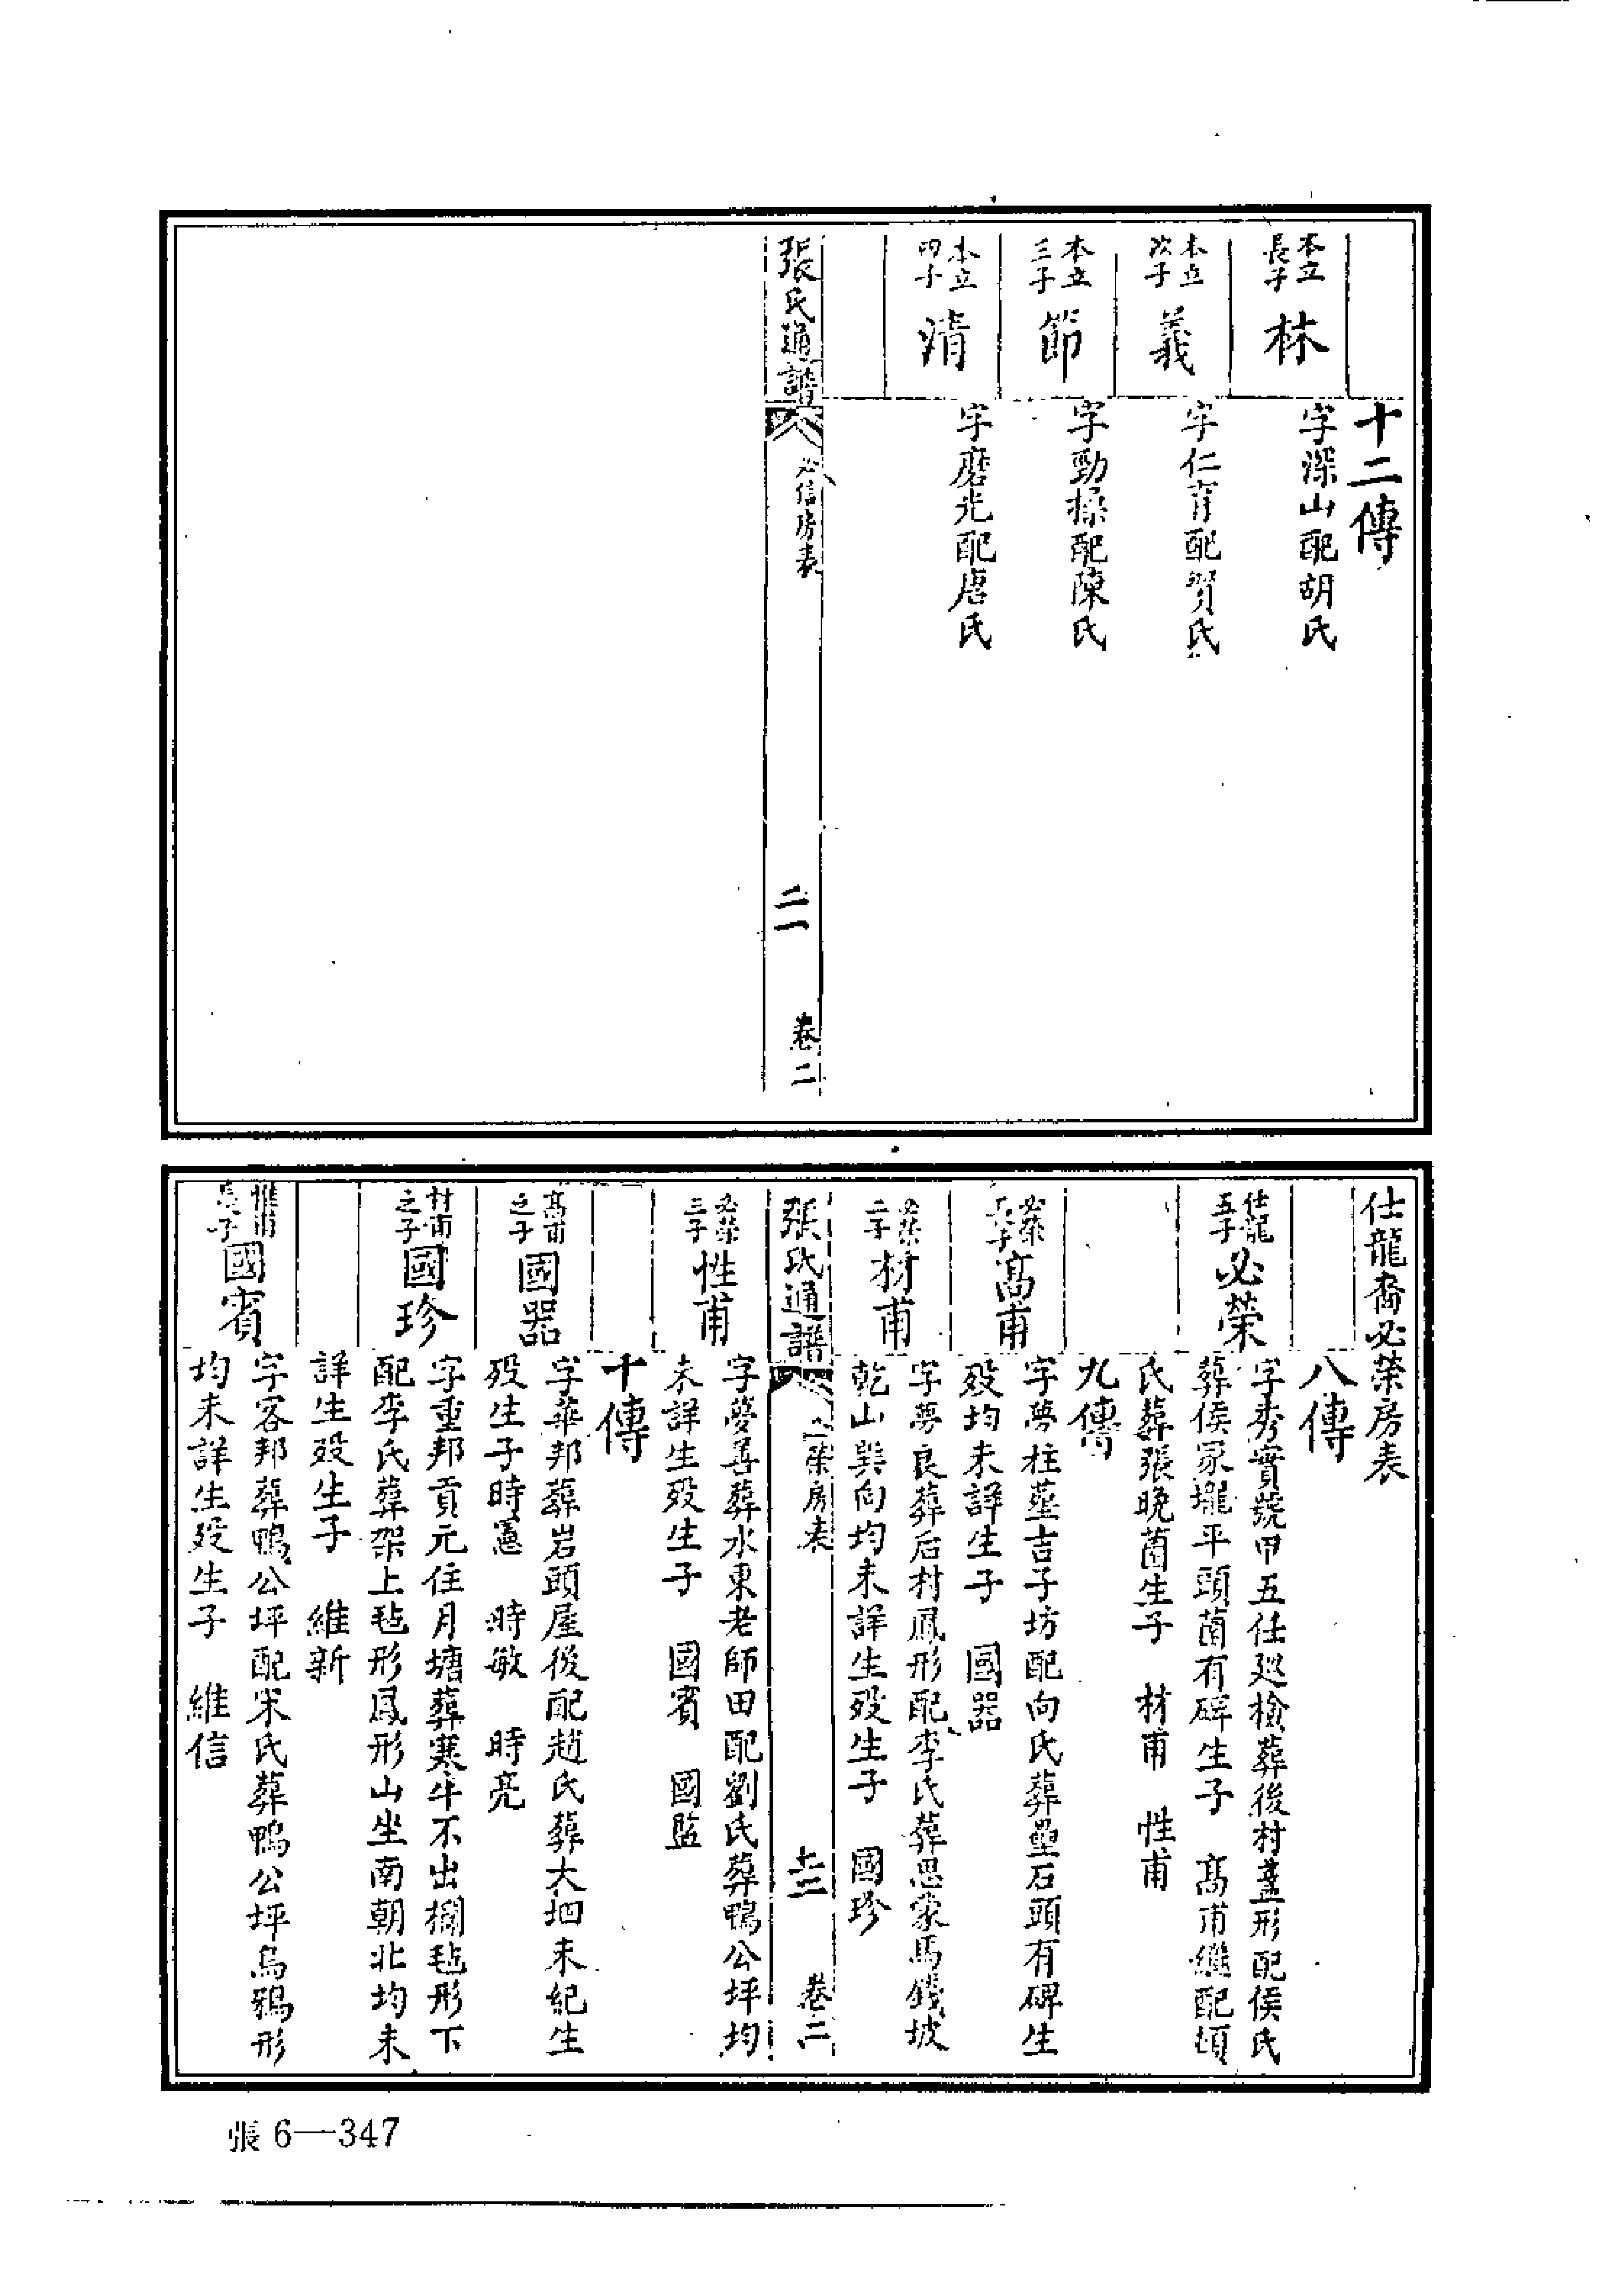 十二傳
本立長子
林
字深山配胡氏
本立次子
義
字仁育配賀氏
本立三子
節
字勁操配陳氏
本立四子
清
字磨光配唐氏
張氏通譜
必信房表
二一
卷二
仕龍裔必榮房表
八傳
仕龍五子
必榮
字秀實號甲五任廵檢葬後村葢形配侯氏
葬侯家壠平頭菌有碑生子 髙甫繼配頓
氏葬張晚菌生子 材甫 性甫
九傳
必榮
髙甫
字夢柱葬吉子坊配向氏葬壘石頭有碑生
殁均未詳生子 國器
必榮二子
材甫
字夢良葬后村鳳形配李氏葬思蒙馬錢坡
乾山巽向均未詳生殁生子 國珍
張氏通譜
榮房表
卷二
必榮三子
性甫
字夢善葬水東老師田配劉氏葬鴨公坪均
未詳生殁生子 國賓 國監
十傳
髙甫之子
國器
字華邦葬岩頭屋後配趙氏葬大坵未紀生
殁生子時憲 時敏 時亮
材甫之子
國珍
字重邦貢元住月塘葬寒牛不出欄毡形下
配李氏葬架上毡形鳳形山坐南朝北均未
詳生殁生子 維新
國賓
字客邦葬鴨公坪配宋氏葬鴨公坪烏鴉形
均未詳生殁生子 維信
張 6—347